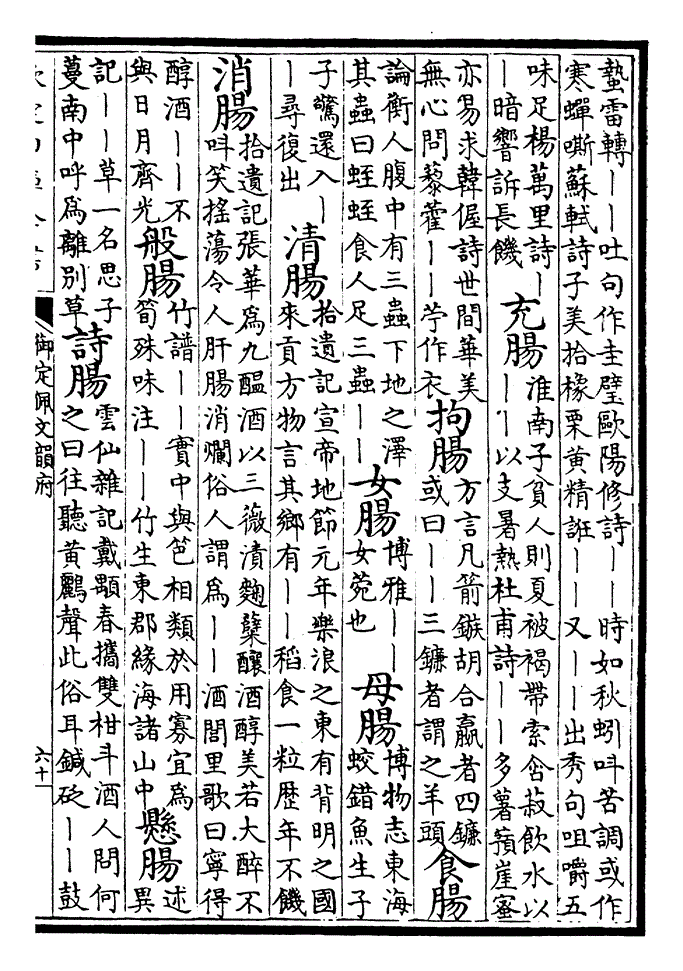 蟄雷轉丨丨吐句作圭璧歐陽修詩丨丨時如秋蚓叫苦調或作
寒蟬嘶蘇軾詩子美拾橡栗黄精誑丨丨又丨丨出秀句咀嚼五
味足楊萬里詩丨
丨暗響訴長饑
充腸
淮南子貧人則夏被褐帶索含菽飲水以
丨丨以支暑熱杜甫詩丨丨多薯蕷崖蜜
亦易求韓偓詩世間華美
無心問藜藿丨丨苧作衣
拘腸
方言凡箭鏃胡合嬴者四鐮
或曰丨丨三鐮者謂之羊頭
食腸
論衡人腹中有三蟲下地之澤
其蟲曰蛭蛭食人足三蟲丨丨
女腸
博雅丨丨
女菀也
母腸
博物志東海
蛟錯魚生子
子驚還入丨
丨尋復出
清腸
拾遺記宣帝地節元年樂浪之東有背明之國
來貢方物言其鄉有丨丨稻食一粒歴年不饑
消腸
拾遺記張華爲九醖酒以三薇漬麴蘖釀酒醇美若大醉不
叫笑搖蕩令人肝腸消爛俗人謂爲丨丨酒閭里歌曰寧得
醇酒丨丨不
與日月齊光
般腸
竹譜丨丨實中與笆相類於用寡宜爲
筍殊味注丨丨竹生東郡緣海諸山中
懸腸
述
異
記丨丨草一名思子
蔓南中呼爲離別草
詩腸
雲仙雜記戴顒春攜雙柑斗酒人問何
之曰往聽黄鸝聲此俗耳鍼砭丨丨鼓
御定佩文韻府
六十